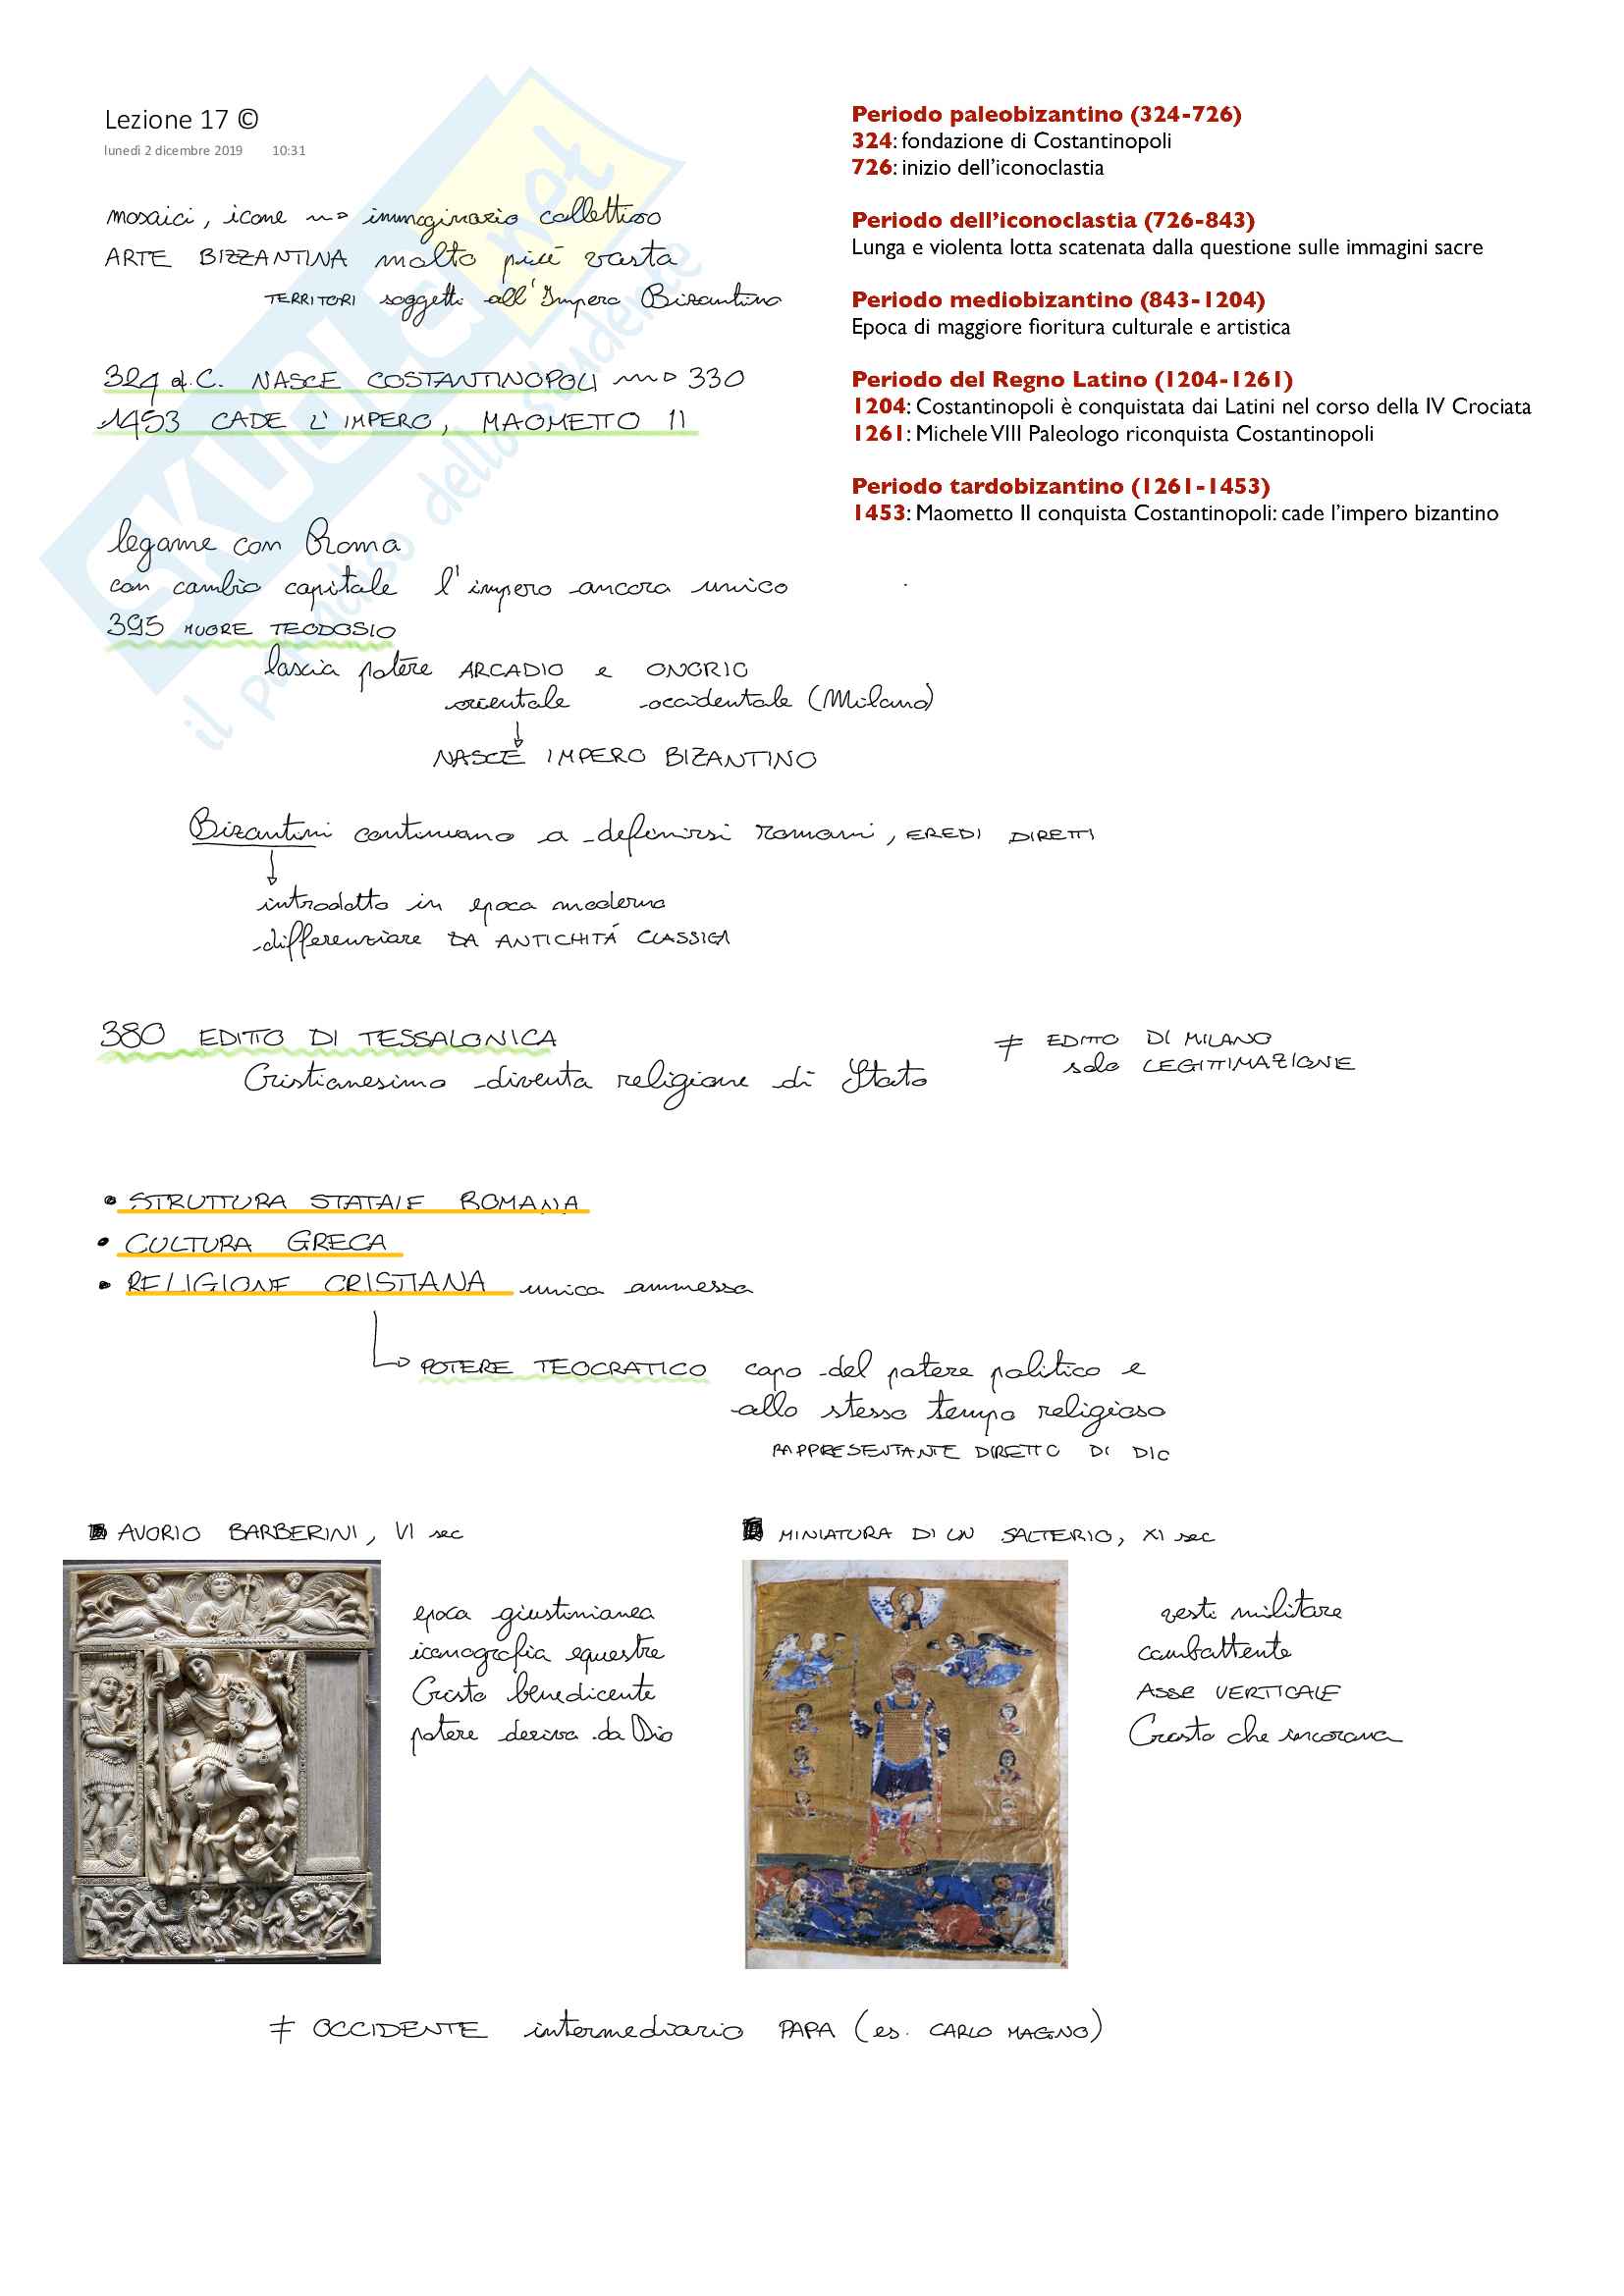 Lezione 17 ©
lunedì 2 dicembre 2019 10:31
mosaici, icone → immaginario collettivo
ARTE BIZZANTINA molto più vasta
TERRITORI soggetti all'Impero Bizantino
324 d.C. NASCE COSTANTINOPOLI → 330
1453 CADE L'IMPERO, MAOMETTO II
Periodo paleobizantino (324-726)
324: fondazione di Costantinopoli
726: inizio dell'iconoclastia
Periodo dell'iconoclastia (726-843)
Lunga e violenta lotta scatenata dalla questione sulle immagini sacre
Periodo mediobizantino (843-1204)
Epoca di maggiore fioritura culturale e artistica
Periodo del Regno Latino (1204-1261)
1204: Costantinopoli è conquistata dai Latini nel corso della IV Crociata
1261: Michele VIII Paleologo riconquista Costantinopoli
Periodo tardobizantino (1261-1453)
1453: Maometto II conquista Costantinopoli: cade l'impero bizantino
legame con Roma
con cambio capitale l'impero ancora unico
395 MUORE TEODOSIO
lascia potere ARCADIO e ONORIO
orientale occidentale (Milano)
↓
NASCE IMPERO BIZANTINO
Bizantini continuano a definirsi romani, EREDI DIRETTI
↓
introdotto in epoca moderna
differenziare DA ANTICHITÁ CLASSICA
380 EDITTO DI TESSALONICA
Cristianesimo diventa religione di Stato
≠ EDITTO DI MILANO
solo LEGITTIMAZIONE
• STRUTTURA STATALE ROMANA
• CULTURA GRECA
• RELIGIONE CRISTIANA unica ammessa
↳ POTERE TEOCRATICO capo del potere politico e
allo stesso tempo religioso
RAPPRESENTANTE DIRETTO DI DIO
AVORIO BARBERINI, VI sec
epoca giustinianea
iconografia equestre
Cristo benedicente
potere deriva da Dio
MINIATURA DI UN SALTERIO, XI sec
vesti militare
combattente
ASSE VERTICALE
Cristo che incorona
≠ OCCIDENTE intermediario PAPA (es. CARLO MAGNO)
SKUOLA.net
il paradiso dello studente